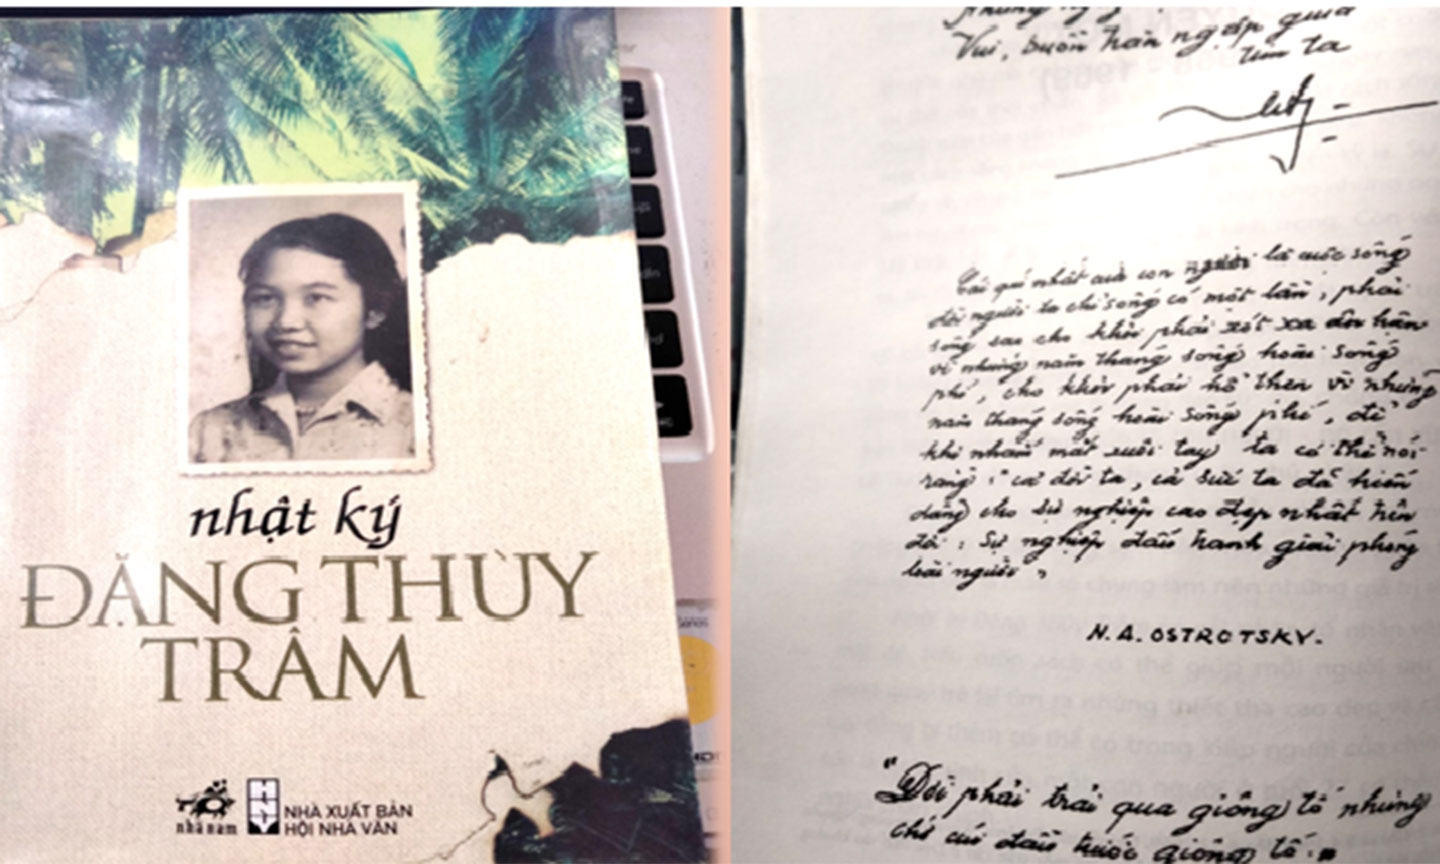 nhật ký
ĐẶNG THÙY
TRÂM
nhã nam
HNV
NHÀ XUẤT BẢN
HỘI NHÀ VĂN
Vui, buồn tràn ngập giữa
tim ta
Cái quí nhất của con người là cuộc sống
đời người ta chỉ sống có một lần, phải
sống sao cho khỏi phải xót xa ân hận
vì những năm tháng sống hoài sống
phí, cho khỏi phải hổ thẹn vì những
năm tháng sống hoài sống phí, để
khi nhắm mắt xuôi tay ta có thể nói
rằng: cả đời ta, cả sức ta đã hiến
dâng cho sự nghiệp cao đẹp nhất trên
đời: sự nghiệp đấu tranh giải phóng
loài người,
N.A. OSTROTSKY.
"Đời phải trải qua giông tố nhưng
chớ cúi đầu trước giông tố."